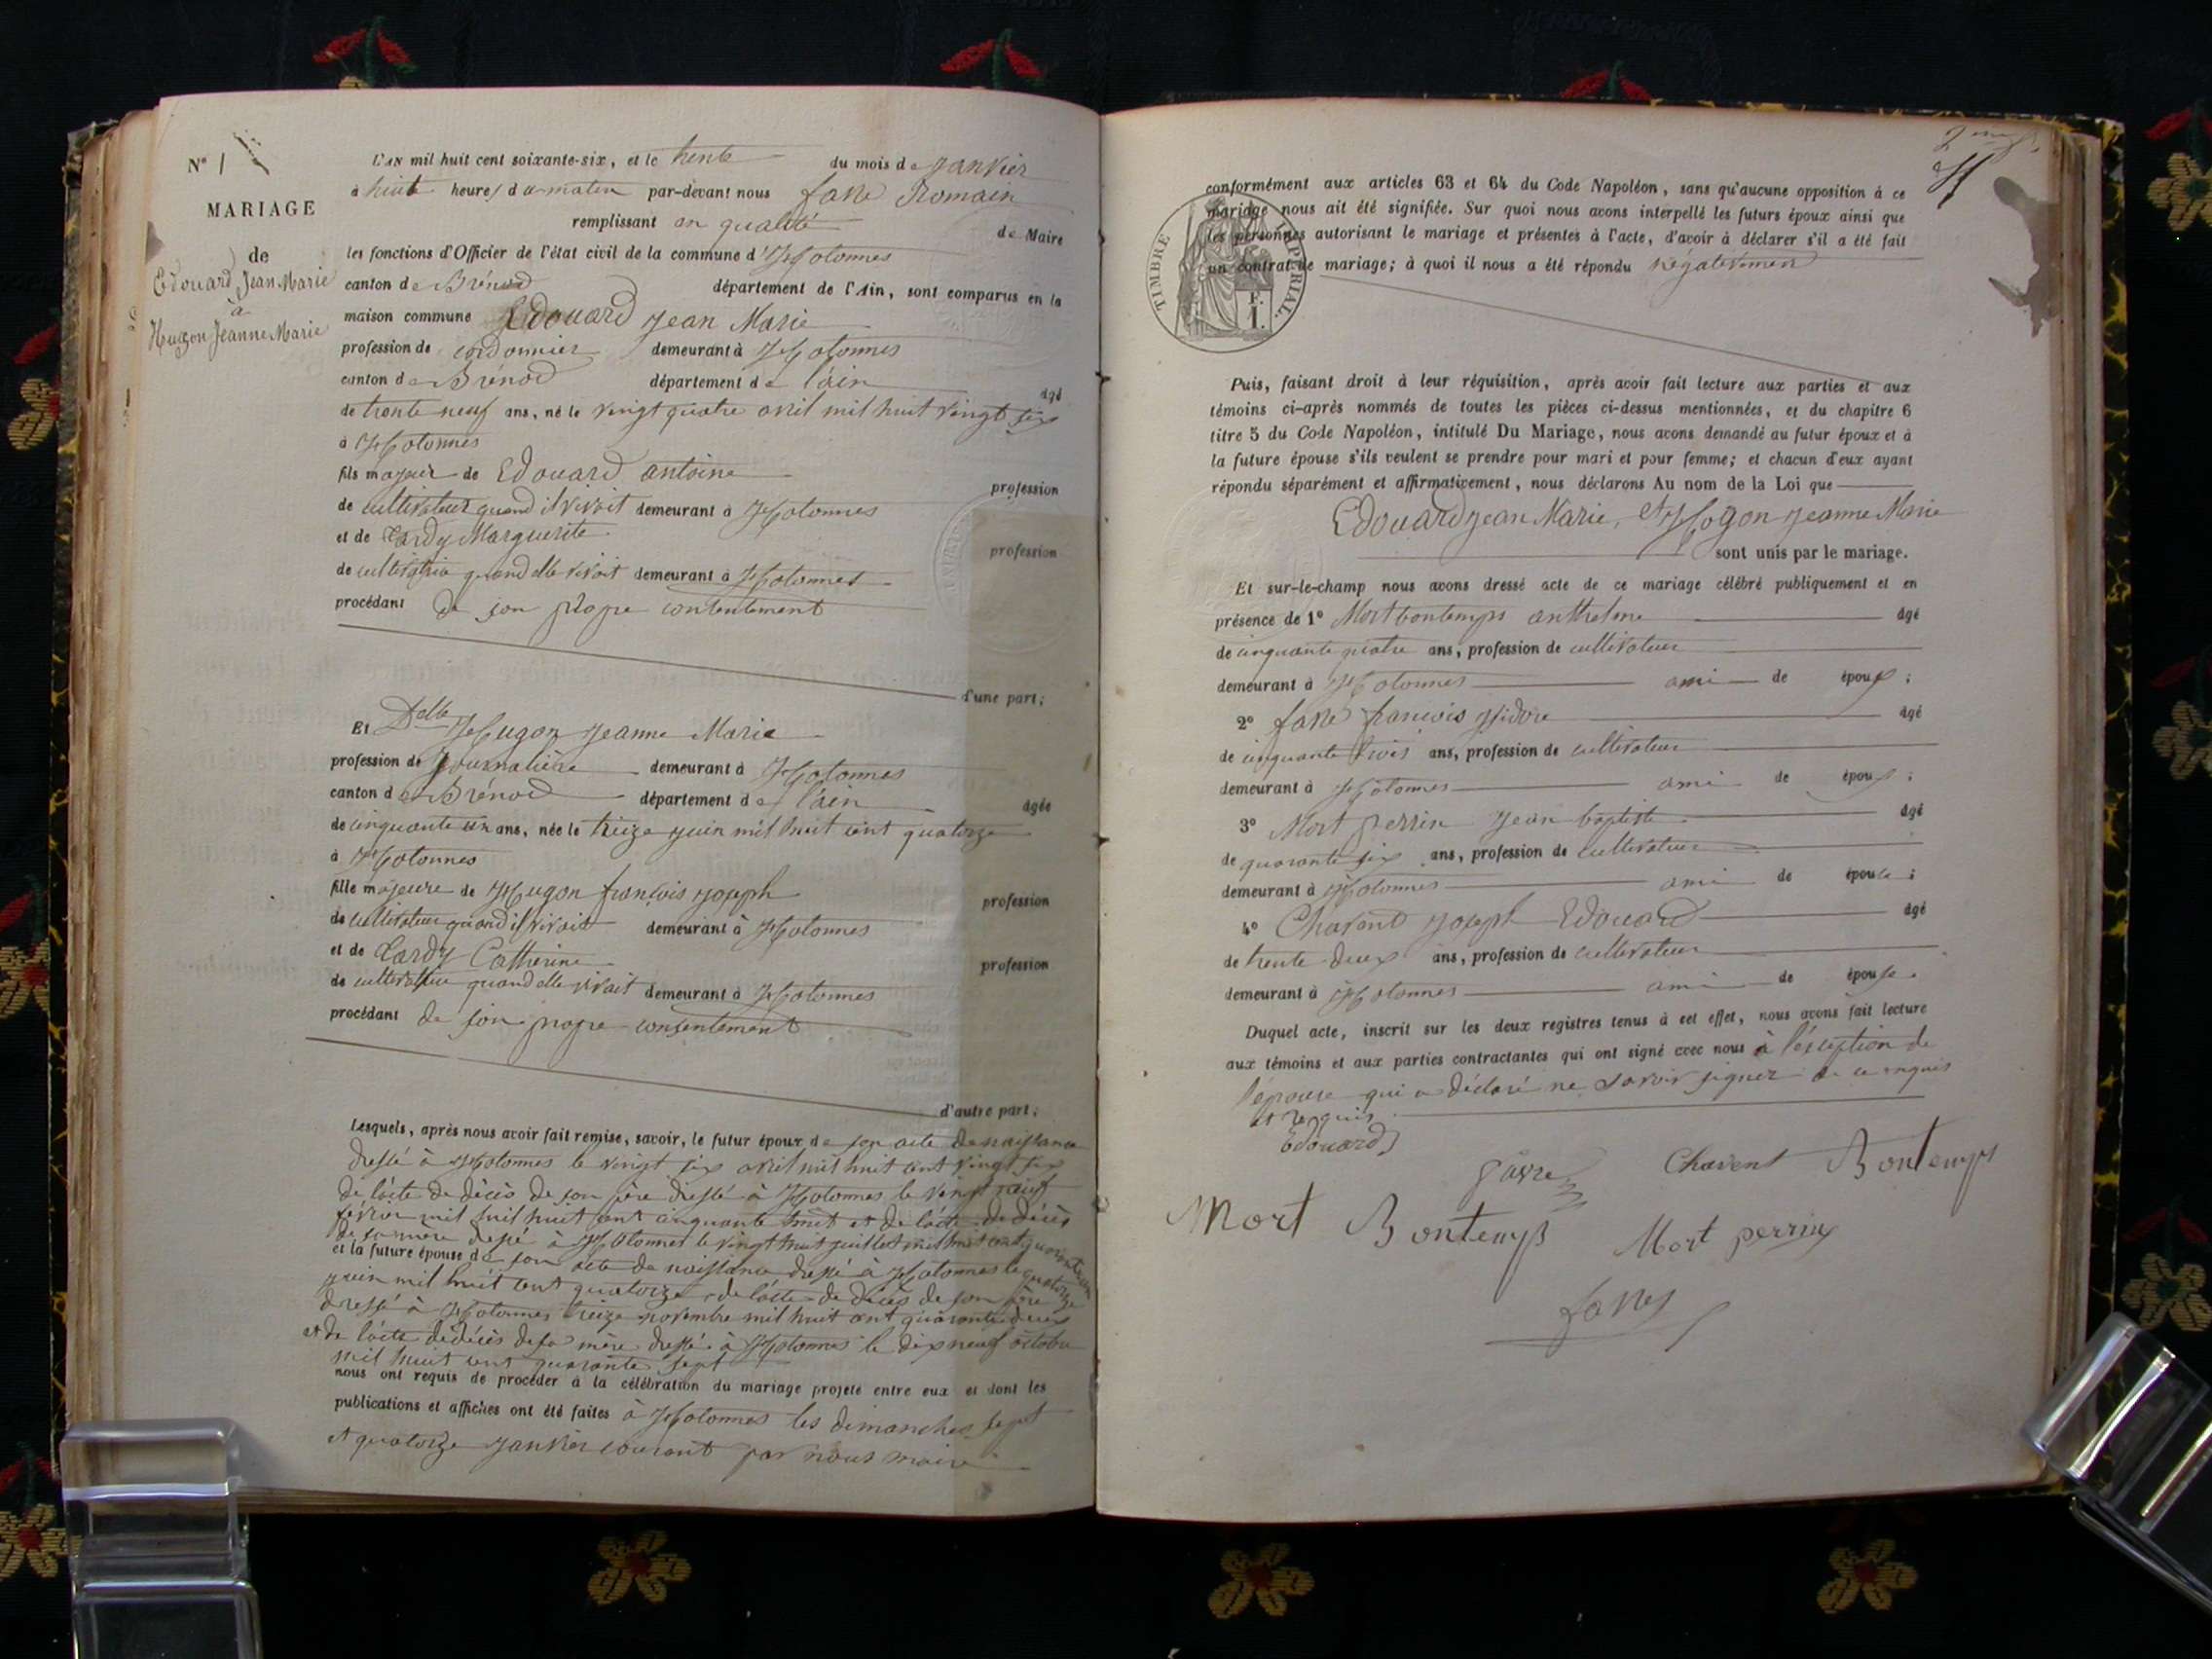 N° 1
MARIAGE
de
Edouard Jean Marie
à
Hugon Jeanne Marie
L'AN mil huit cent soixante-six, et le trente du mois de janvier
à huit heures du matin par-devant nous favre Romain
remplissant en qualité de Maire
les fonctions d'Officier de l'état civil de la commune d'Hotonnes
canton de Brénod département de l'Ain, sont comparus en la
maison commune Edouard jean Marie
profession de cordonnier demeurant à Hotonnes
canton de Brénod département de l'ain âgé
de trente neuf ans, né le vingt quatre avril mil huit vingt six
à Hotonnes
fils majeur de Edouard antoine profession
de cultivateur quand il vivait demeurant à Hotonnes
et de Tardy Marguerite profession
de cultivatrice quand elle vivait demeurant à Hotonnes
procédant de son propre consentement
d'une part;
Et Delle Hugon jeanne Marie
profession de journalière demeurant à Hotonnes
canton de Brénod département de l'ain âgée
de cinquante un ans, née le treize juin mil huit cent quatorze
à Hotonnes
fille majeure de Hugon françois joseph profession
de cultivateur quand il vivait demeurant à Hotonnes
et de Tardy Catherine profession
de cultivatrice quand elle vivait demeurant à Hotonnes
procédant de son propre consentement
d'autre part;
Lesquels, après nous avoir fait remise, savoir, le futur époux de son acte de naissance
dressé à Hotonnes le vingt six avril mil huit cent vingt six
de l'acte de décès de son père dressé à Hotonnes le vingt neuf
février mil huit cent cinquante huit et de l'acte de décès
de sa mère dressé à Hotonnes le vingt huit juillet mil huit cent quarante
et la future épouse de son acte de naissance dressé à Hotonnes le quatorze
juin mil huit cent quatorze, de l'acte de décès de son père
dressé à Hotonnes treize novembre mil huit cent quarante deux
et de l'acte de décès de sa mère dressé à Hotonnes le dix neuf octobre
mil huit cent quarante sept
nous ont requis de procéder à la célébration du mariage projeté entre eux et dont les
publications et affiches ont été faites à Hotonnes les dimanches sept
et quatorze janvier courant par nous maire
conformément aux articles 63 et 64 du Code Napoléon, sans qu'aucune opposition à ce
mariage nous ait été signifiée. Sur quoi nous avons interpellé les futurs époux ainsi que
les personnes autorisant le mariage et présentes à l'acte, d'avoir à déclarer s'il a été fait
un contrat de mariage; à quoi il nous a été répondu négativement
TIMBRE IMPÉRIAL.
F.
I.
Puis, faisant droit à leur réquisition, après avoir fait lecture aux parties et aux
témoins ci-après nommés de toutes les pièces ci-dessus mentionnées, et du chapitre 6
titre 5 du Code Napoléon, intitulé Du Mariage, nous avons demandé au futur époux et à
la future épouse s'ils veulent se prendre pour mari et pour femme; et chacun d'eux ayant
répondu séparément et affirmativement, nous déclarons Au nom de la Loi que
Edouard jean Marie, et Hugon jeanne Marie
sont unis par le mariage.
Et sur-le-champ nous avons dressé acte de ce mariage célébré publiquement et en
présence de 1° Mort bontemps anthelme âgé
de cinquante quatre ans, profession de cultivateur
demeurant à Hotonnes ami de époux;
2° favre françois isidore âgé
de cinquante trois ans, profession de cultivateur
demeurant à Hotonnes ami de époux;
3° Mort perrin jean baptiste âgé
de quarante six ans, profession de cultivateur
demeurant à Hotonnes ami de épouse;
4° Chavent joseph Edouard âgé
de trente deux ans, profession de cultivateur
demeurant à Hotonnes ami de épouse.
Duquel acte, inscrit sur les deux registres tenus à cet effet, nous avons fait lecture
aux témoins et aux parties contractantes qui ont signé avec nous à l'exception de
l'épouse qui a déclaré ne savoir signer de ce enquis
et requis.
Edouard
favre Chavent Bontemps
Mort Bontemps Mort perrin
favre